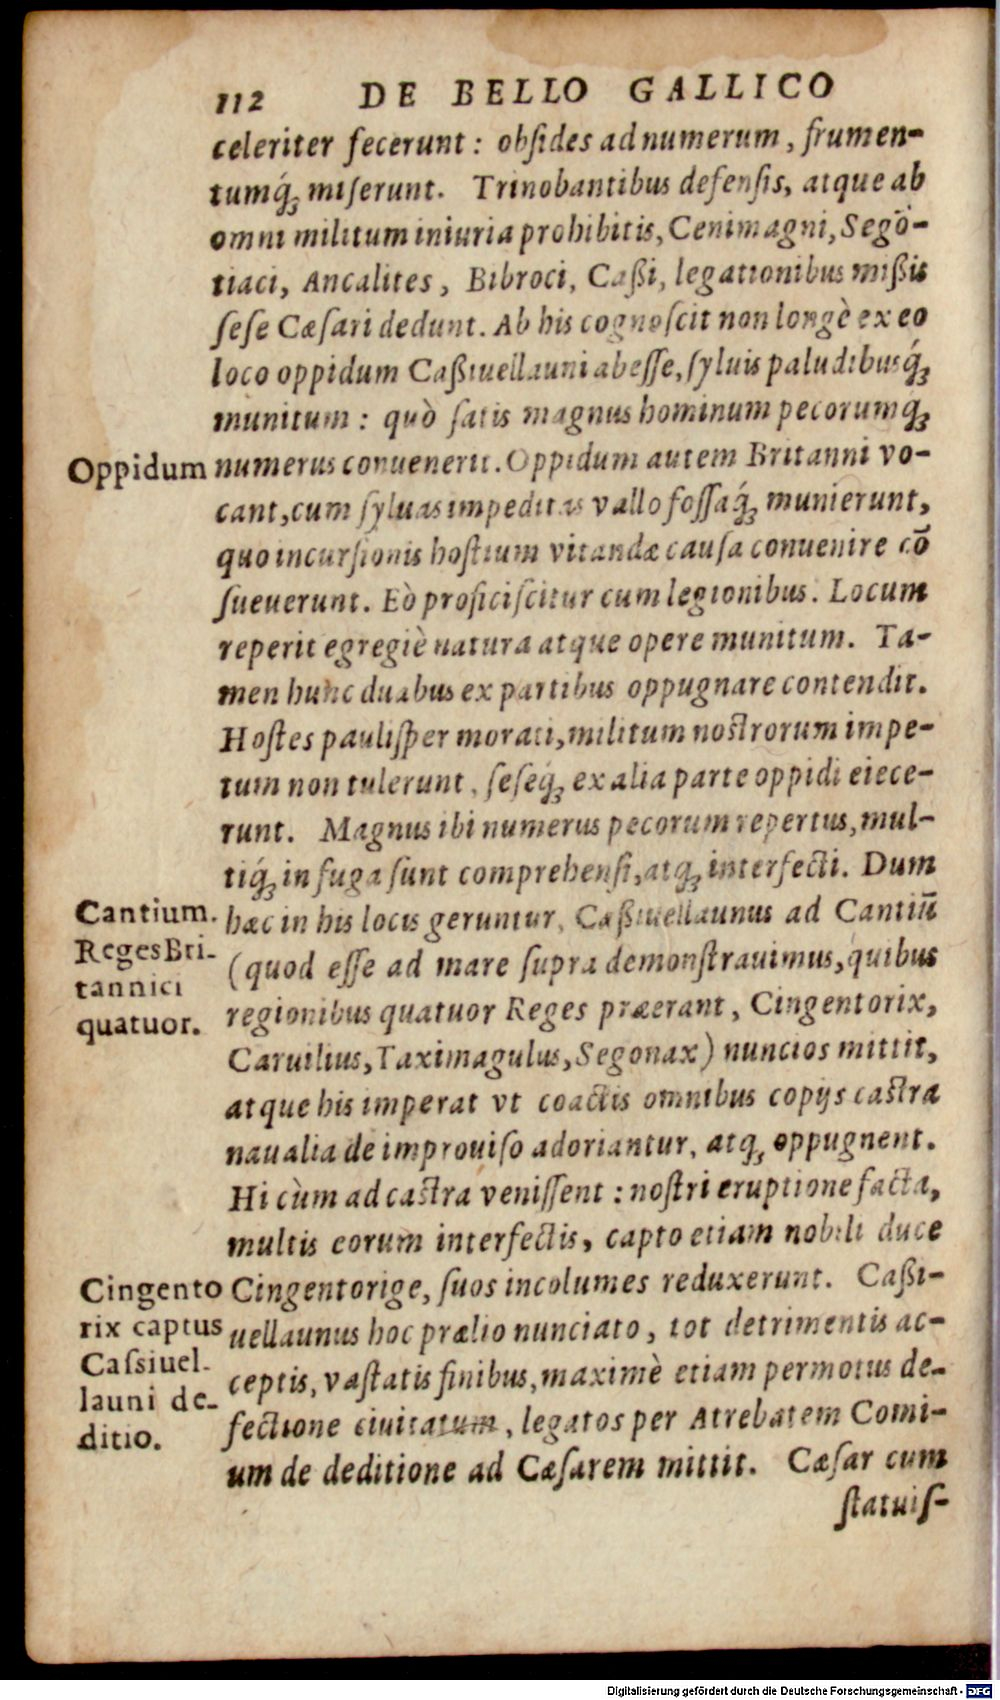 112 DE BELLO GALLICO
celeriter fecerunt: obſides ad numerum, frumen-
tumq́; miſerunt. Trinobantibus defenſis, atque ab
omni militum iniuria prohibitis, Cenimagni, Sego-
tiaci, Ancalites, Bibroci, Caßi, legationibus mißis
ſeſe Cæſari dedunt. Ab his cognoſcit non longè ex eo
loco oppidum Caßiuellauni abeſſe, ſyluis paludibusq́;
munitum: quò ſatis magnus hominum pecorumq́;
Oppidum
numerus conuenerit. Oppidum autem Britanni vo-
cant, cum ſyluas impeditas vallo foſſaq́; munierunt,
quo incurſionis hoſtium vitandæ cauſa conuenire cō
ſueuerunt. Eò proficiſcitur cum legionibus. Locum
reperit egregiè natura atque opere munitum. Ta-
men hunc duabus ex partibus oppugnare contendit.
Hoſtes pauliſper morati, militum noſtrorum impe-
tum non tulerunt, ſeſeq́; ex alia parte oppidi eiece-
runt. Magnus ibi numerus pecorum repertus, mul-
tiq́; in fuga ſunt comprehenſi, atq; interfecti. Dum
hæc in his locis geruntur, Caßiuellaunus ad Cantiū
(quod eſſe ad mare ſupra demonſtrauimus, quibus
regionibus quatuor Reges præerant, Cingentorix,
Caruilius, Taximagulus, Segonax) nuncios mittit,
Cantium.
Reges Bri-
tannici
quatuor.
atque his imperat vt coactis omnibus copijs caſtra
naualia de improuiſo adoriantur, atq; oppugnent.
Hi cùm ad caſtra veniſſent: noſtri eruptione facta,
multis eorum interfectis, capto etiam nobili duce
Cingentorige, ſuos incolumes reduxerunt. Caßi-
uellaunus hoc prælio nunciato, tot detrimentis ac-
ceptis, vaſtatis finibus, maximè etiam permotus de-
fectione ciuitatum, legatos per Atrebatem Comi-
um de deditione ad Cæſarem mittit. Cæſar cum
Cingento
rix captus
Caſsiuel-
launi de-
ditio.
ſtatuiſ-
Digitalisierung gefördert durch die Deutsche Forschungsgemeinschaft - DFG